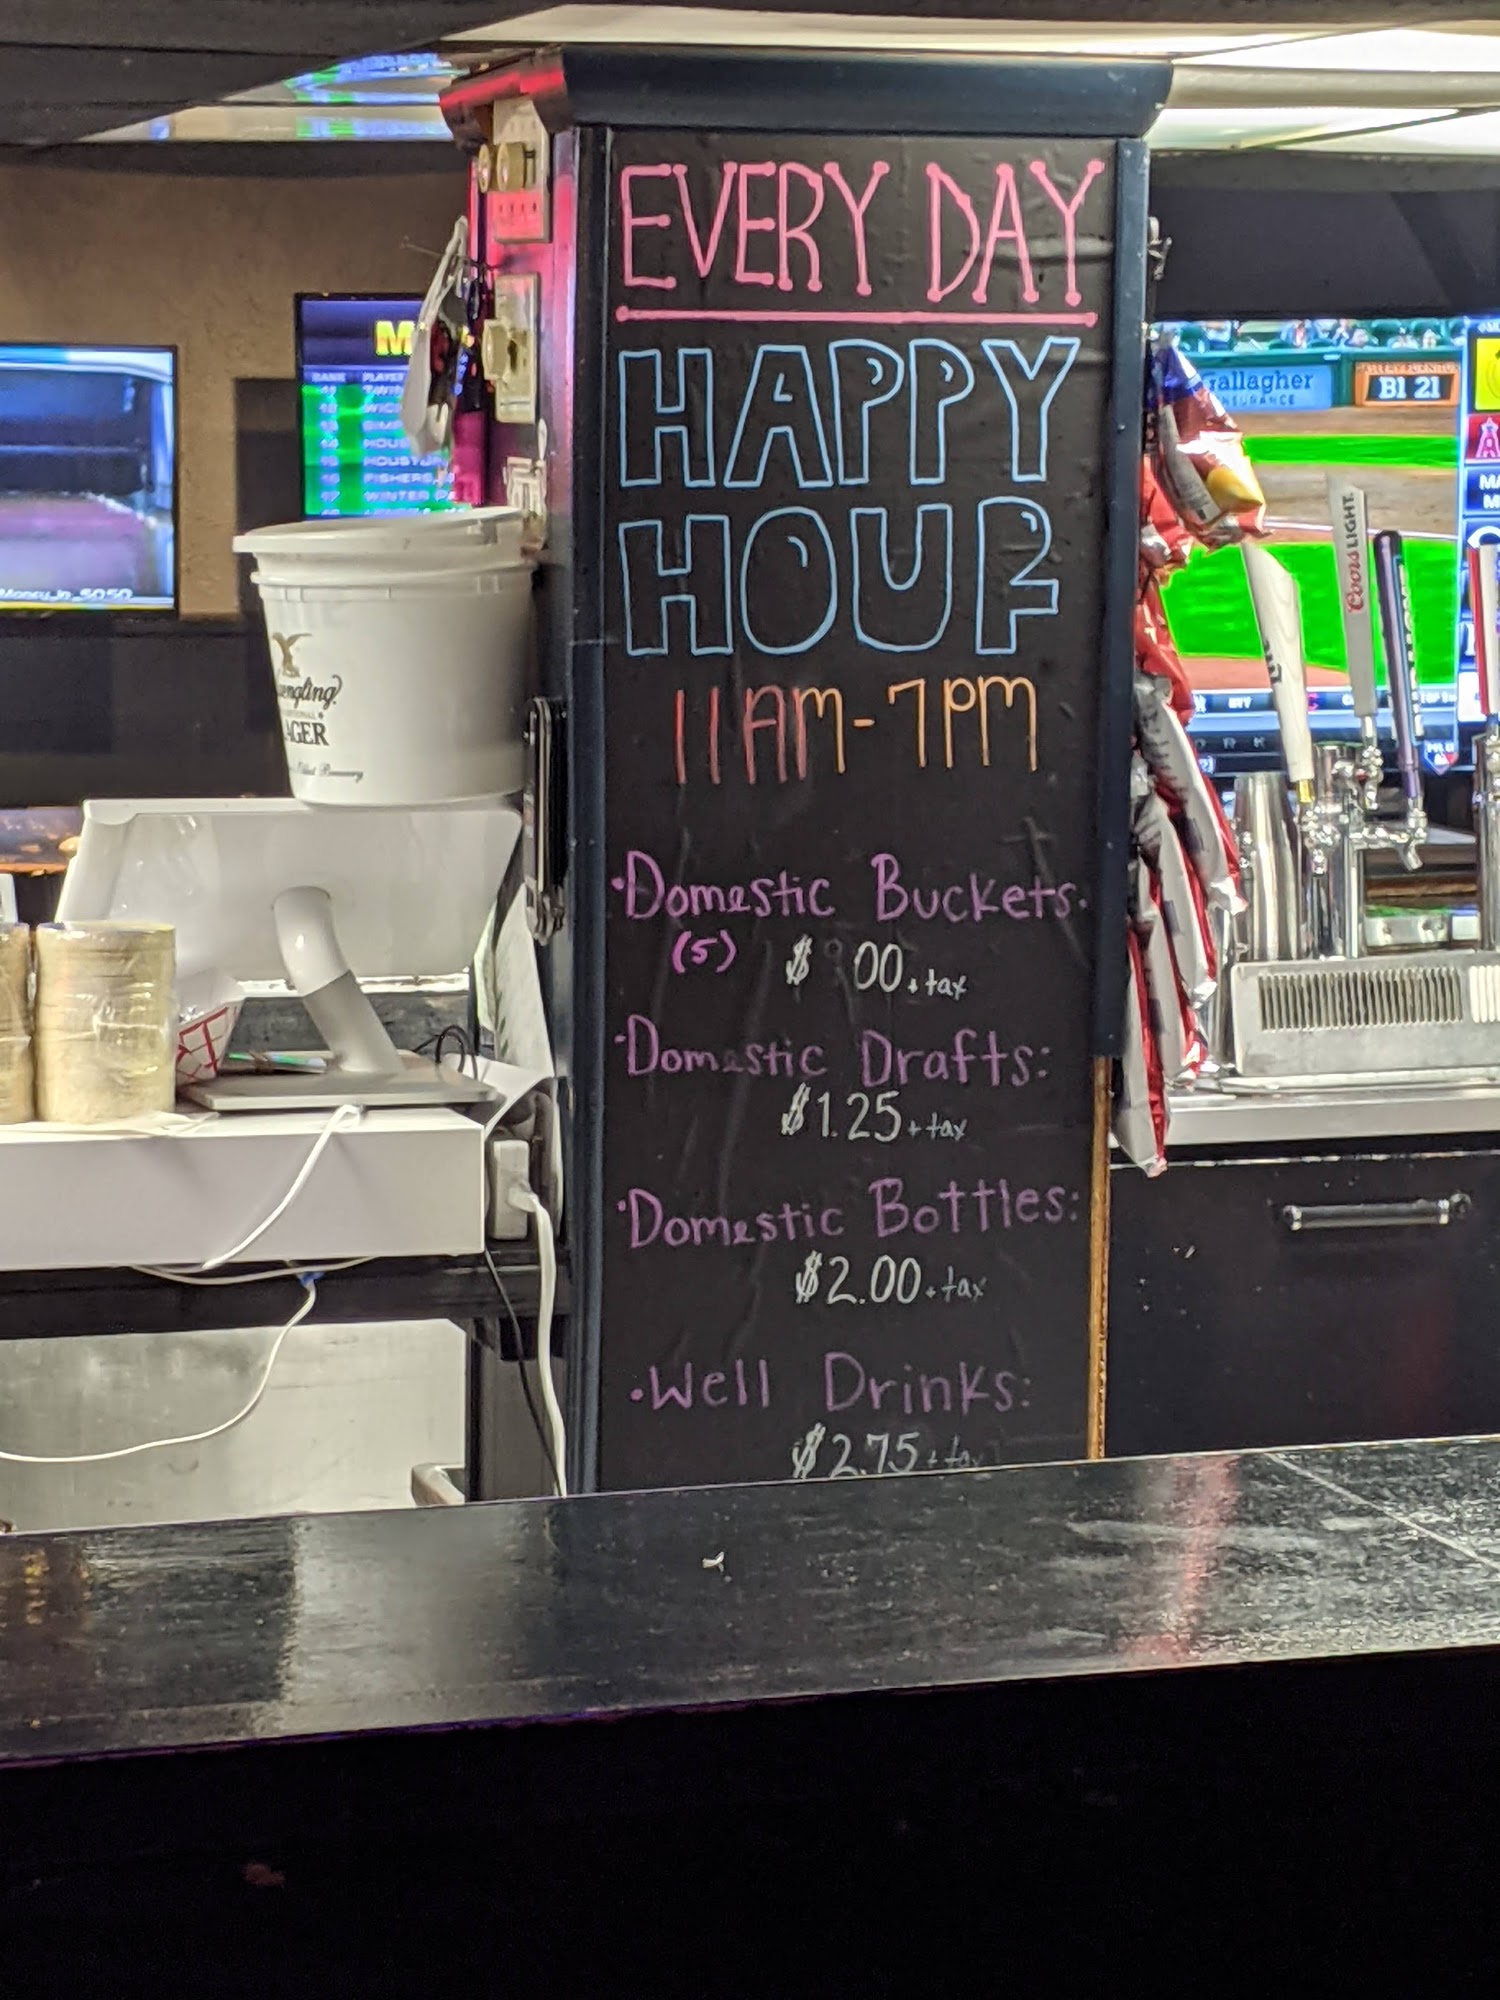 EVERY DAY
HAPPY
HOUR
11AM-7PM
·Domestic Buckets·
(5) $ 00+tax
·Domestic Drafts:
$1.25+tax
·Domestic Bottles:
$2.00+tax
·Well Drinks:
$2.75+tax
RANK PLAYER
HOUSTON
FISHERS
WINTER
LAGER
Gallagher
INSURANCE
B1 21
COORS LIGHT
Lite